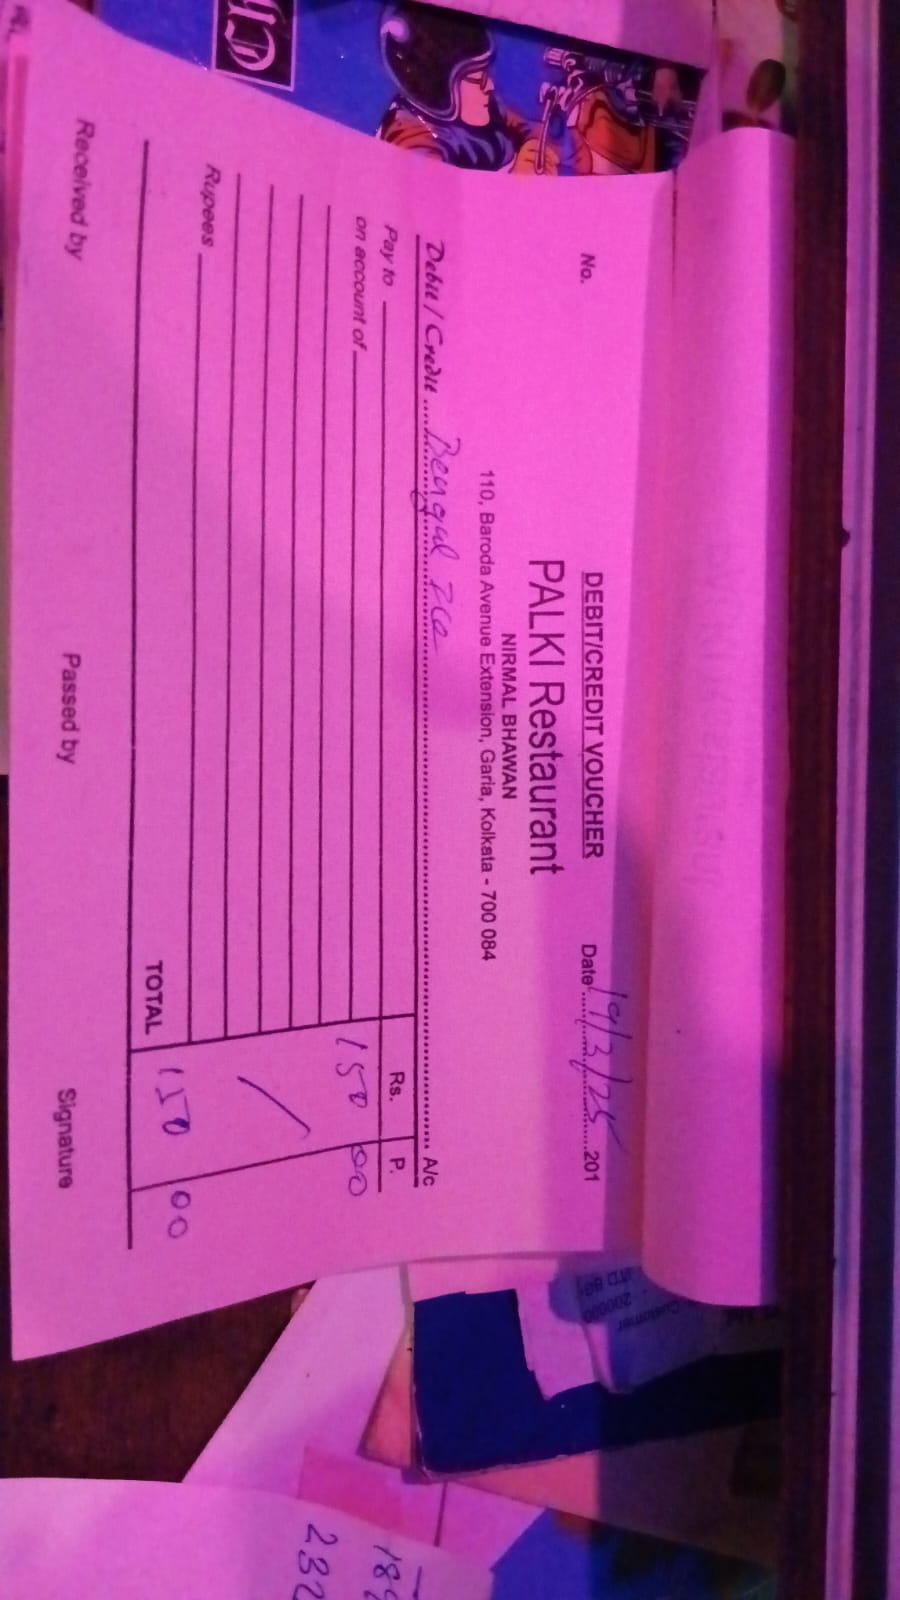 No.
DEBIT/CREDIT VOUCHER
Date 19/3/25 201
PALKI Restaurant
NIRMAL BHAWAN
110, Baroda Avenue Extension, Garia, Kolkata - 700 084
Debit / Credit Bengal Ice A/c
Pay to Rs. P.
on account of 150 00
Rupees
TOTAL 150 00
Received by Passed by Signature
Customer
200000
232